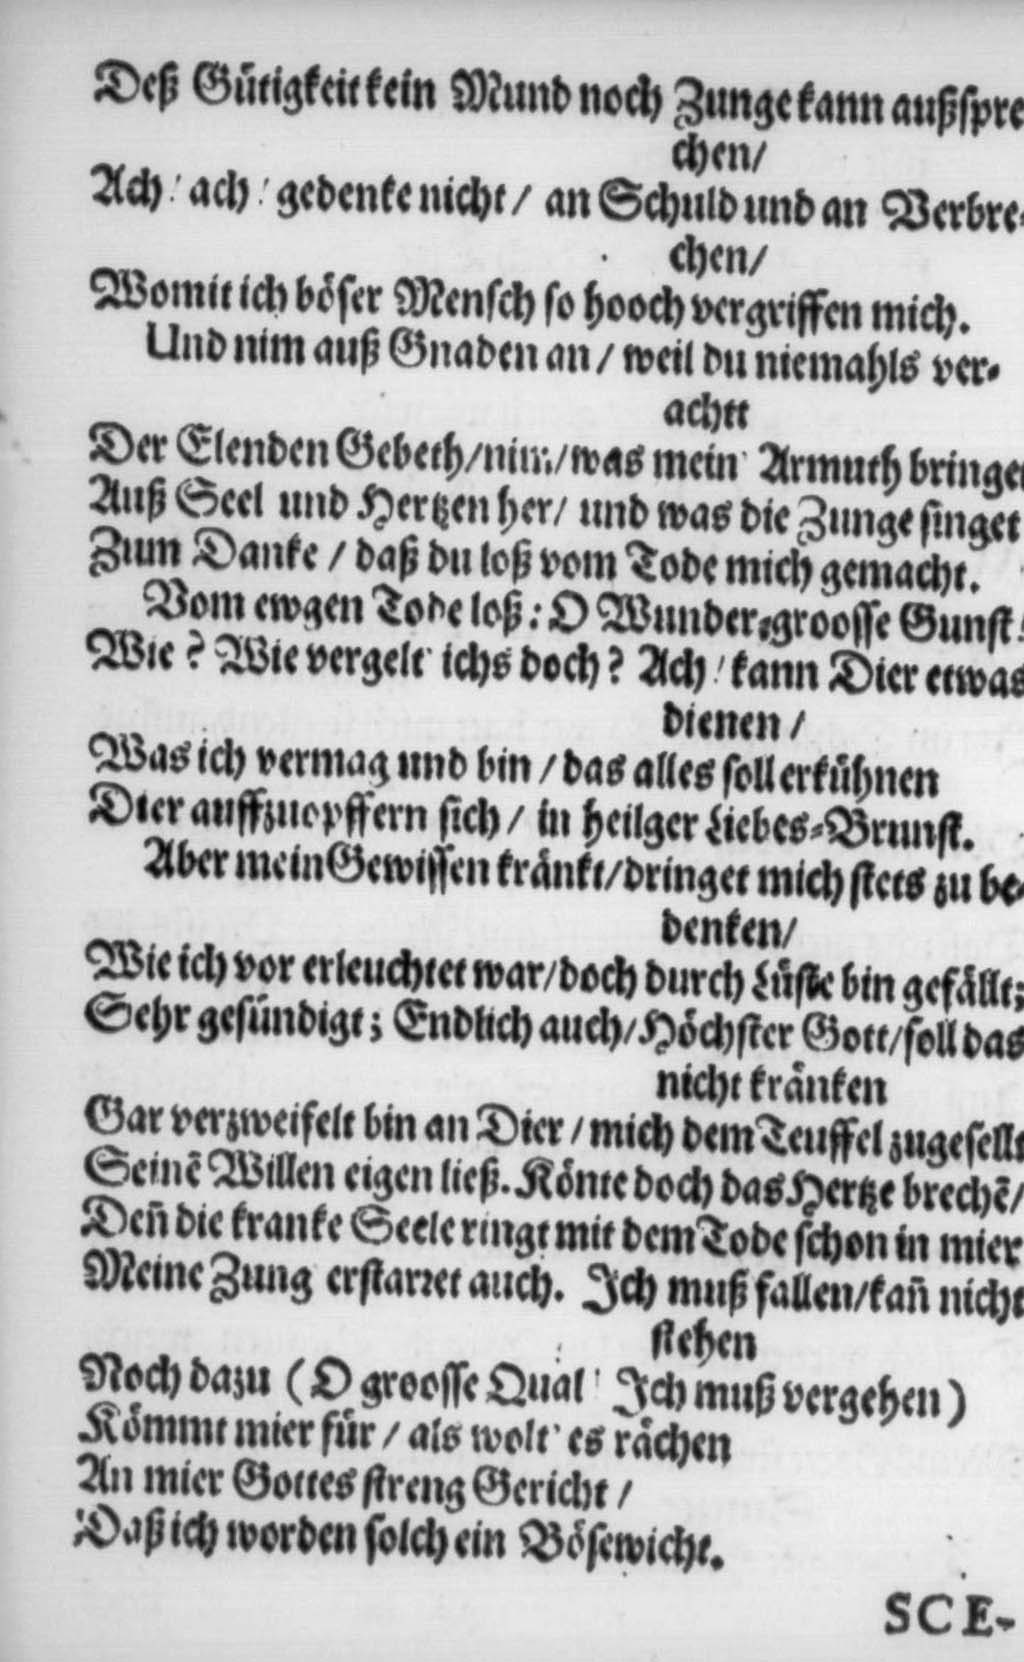 Deß Gütigkeit kein Mund noch Zunge kann außspre
chen/
Ach! ach! gedenke nicht/ an Schuld und an Verbre-
chen/
Womit ich böser Mensch so hooch vergriffen mich.
Und nim auß Gnaden an/ weil du niemahls ver-
achtt
Der Elenden Gebeth/nim/was mein Armuth bringet
Auß Seel und Hertzen her/ und was die Zunge singet
Zum Danke/ daß du loß vom Tode mich gemacht.
Vom ewgen Tode loß: O Wunder-groosse Gunst!
Wie? Wie vergelt' ichs doch? Ach! kann Dier etwas
dienen/
Was ich vermag und bin/ das alles soll erkühnen
Dier auffzuopffern sich/ in heilger Liebes-Brunst.
Aber mein Gewissen kränkt/dringet mich stets zu be-
denken/
Wie ich vor erleuchtet war/doch durch Lüste bin gefällt;
Sehr gesündigt; Endlich auch/Höchster Gott/soll das
nicht kränken
Gar verzweifelt bin an Dier/ mich dem Teuffel zugesellt
Seinē Willen eigen ließ. Könte doch das Hertze brechē/
Deñ die kranke Seele ringt mit dem Tode schon in mier
Meine Zung erstarret auch. Ich muß fallen/kañ nicht
stehen
Noch dazu (O groosse Qual! Ich muß vergehen)
Kömmt mier für/ als wolt' es rächen
An mier Gottes streng Gericht/
Daß ich worden solch ein Bösewicht.
SCE-